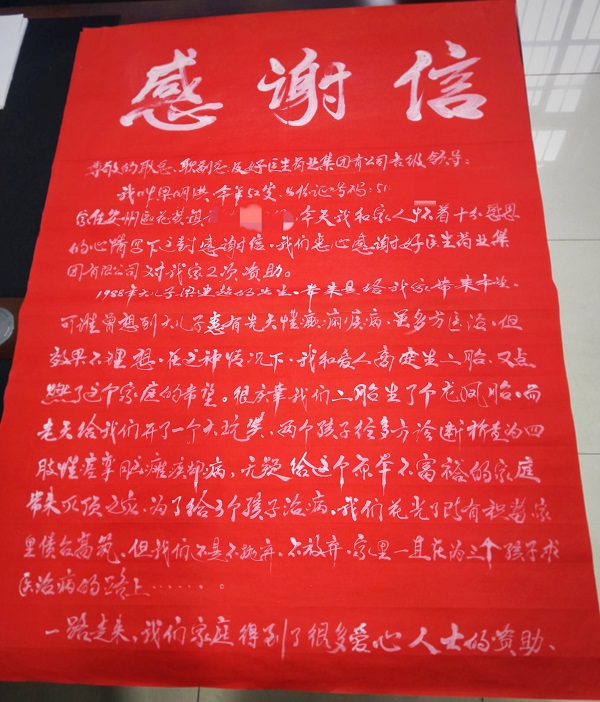 感谢信
尊敬的耿总、耿副总及好医生药业集团有限公司各级领导：
我叫 明洪、今年 岁、身份证号码：51
家住安州区花荄镇 今天我和家人怀着十分感恩
的心情写下这封感谢信、我们衷心感谢好医生药业集
团有限公司对我家2次资助。
1988年大儿子 的出生、带来是给我家带来幸 、
可谁曾想到大儿子患有先天性癫痫疾病、虽多方医治、但
效果不理想、在这种情况下、我和爱人商定生二胎、又点
燃了这个家庭的希望。很庆幸我们二胎生了个龙凤胎、而
老天给我们开了一个大玩笑、两个孩子经多方诊断 查为四
肢性痉挛脑瘫疾病、无疑给这个原本不富裕的家庭
带来灭顶之灾、为了给3个孩子治病、我们花光了所有积蓄家
里债台高筑、但我们还是不抛弃、不放弃、家里一直在为三个孩子求
医治病的路上……。
一路走来、我们家庭得到了很多爱心人士的资助、